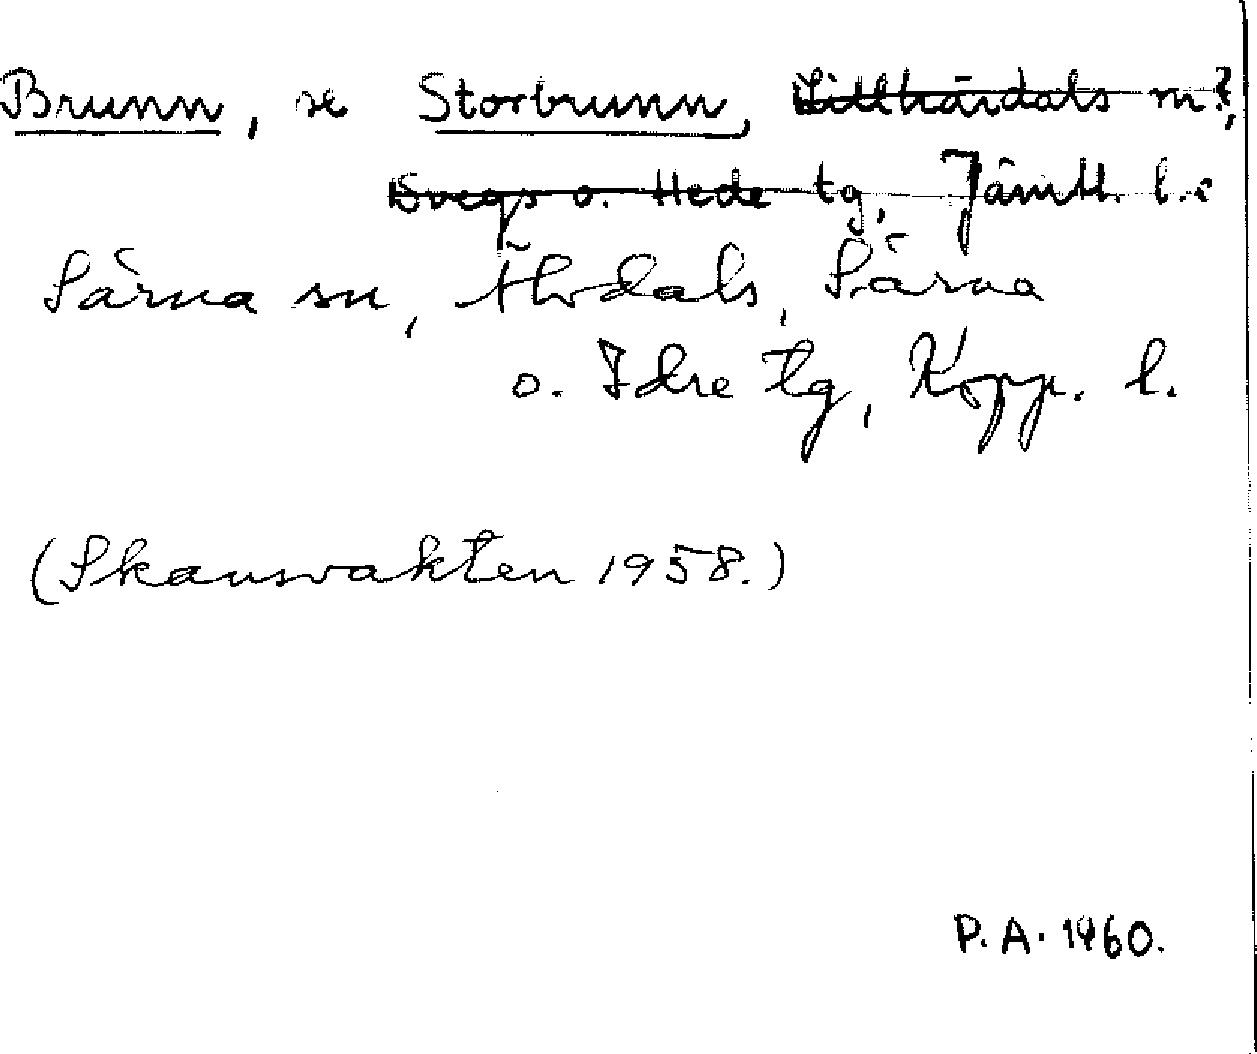 Brunn, se Storbrunn, Lillhärdals sn?,
Svegs o. Hede tg, Jämtl. l.:
Särna sn, Älvdals, Särna
o. Idre tg, Kopp. l.
(Skansvakten 1958.)
P. A. 1960.